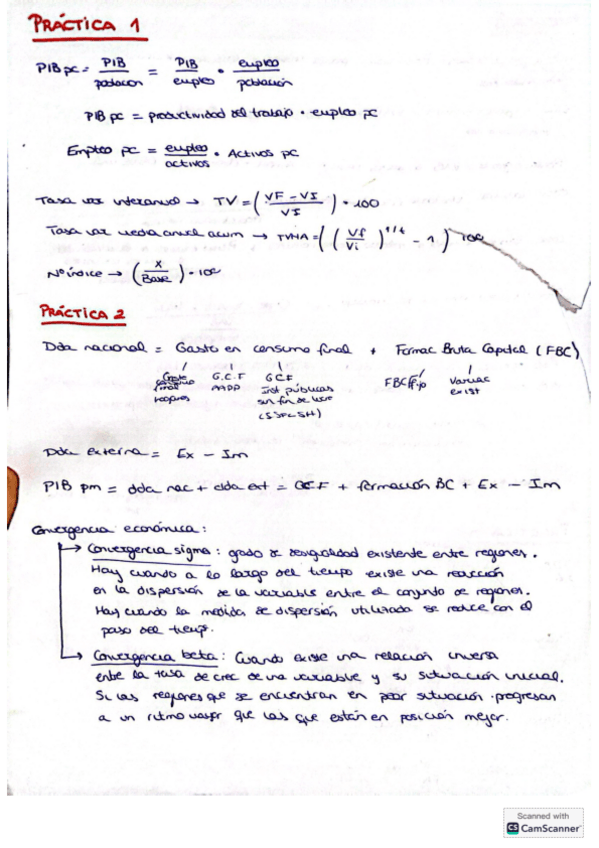 PRÁCTICA 1
PIB pc = PIB/población = PIB/empleo · empleo/población
PIB pc = productividad del trabajo · empleo pc
Empleo pc = empleo/activos · Activos pc
Tasa var interanual → TV = (VF - VI / VI) · 100
Tasa var media anual acum → TVMA = ((Vf/Vi)^1/t - 1) · 100
Nº índice → (X/Base) · 100
PRÁCTICA 2
Dda nacional = Gasto en consumo final + Formac Bruta Capital (FBC)
Gasto consumo final hogares
G.C.F AAPP
GCF inst públicas sin fin de lucro (ISFLSH)
FBCFijo
Variac exist
Dda externa = Ex - Im
PIB pm = dda nac + dda ext = GCF + formación BC + Ex - Im
Convergencia económica:
→ Convergencia sigma: grado de desigualdad existente entre regiones.
Hay cuando a lo largo del tiempo existe una reducción
en la dispersión de la variable entre el conjunto de regiones.
Hay cuando la medida de dispersión utilizada se reduce con el
paso del tiemp.
→ Convergencia beta: Cuando existe una relación inversa
entre la tasa de crec de una variable y su situación inicial.
Si las regiones que se encuentran en peor situación progresan
a un ritmo mayor que las que están en posición mejor.
Scanned with
CS CamScanner